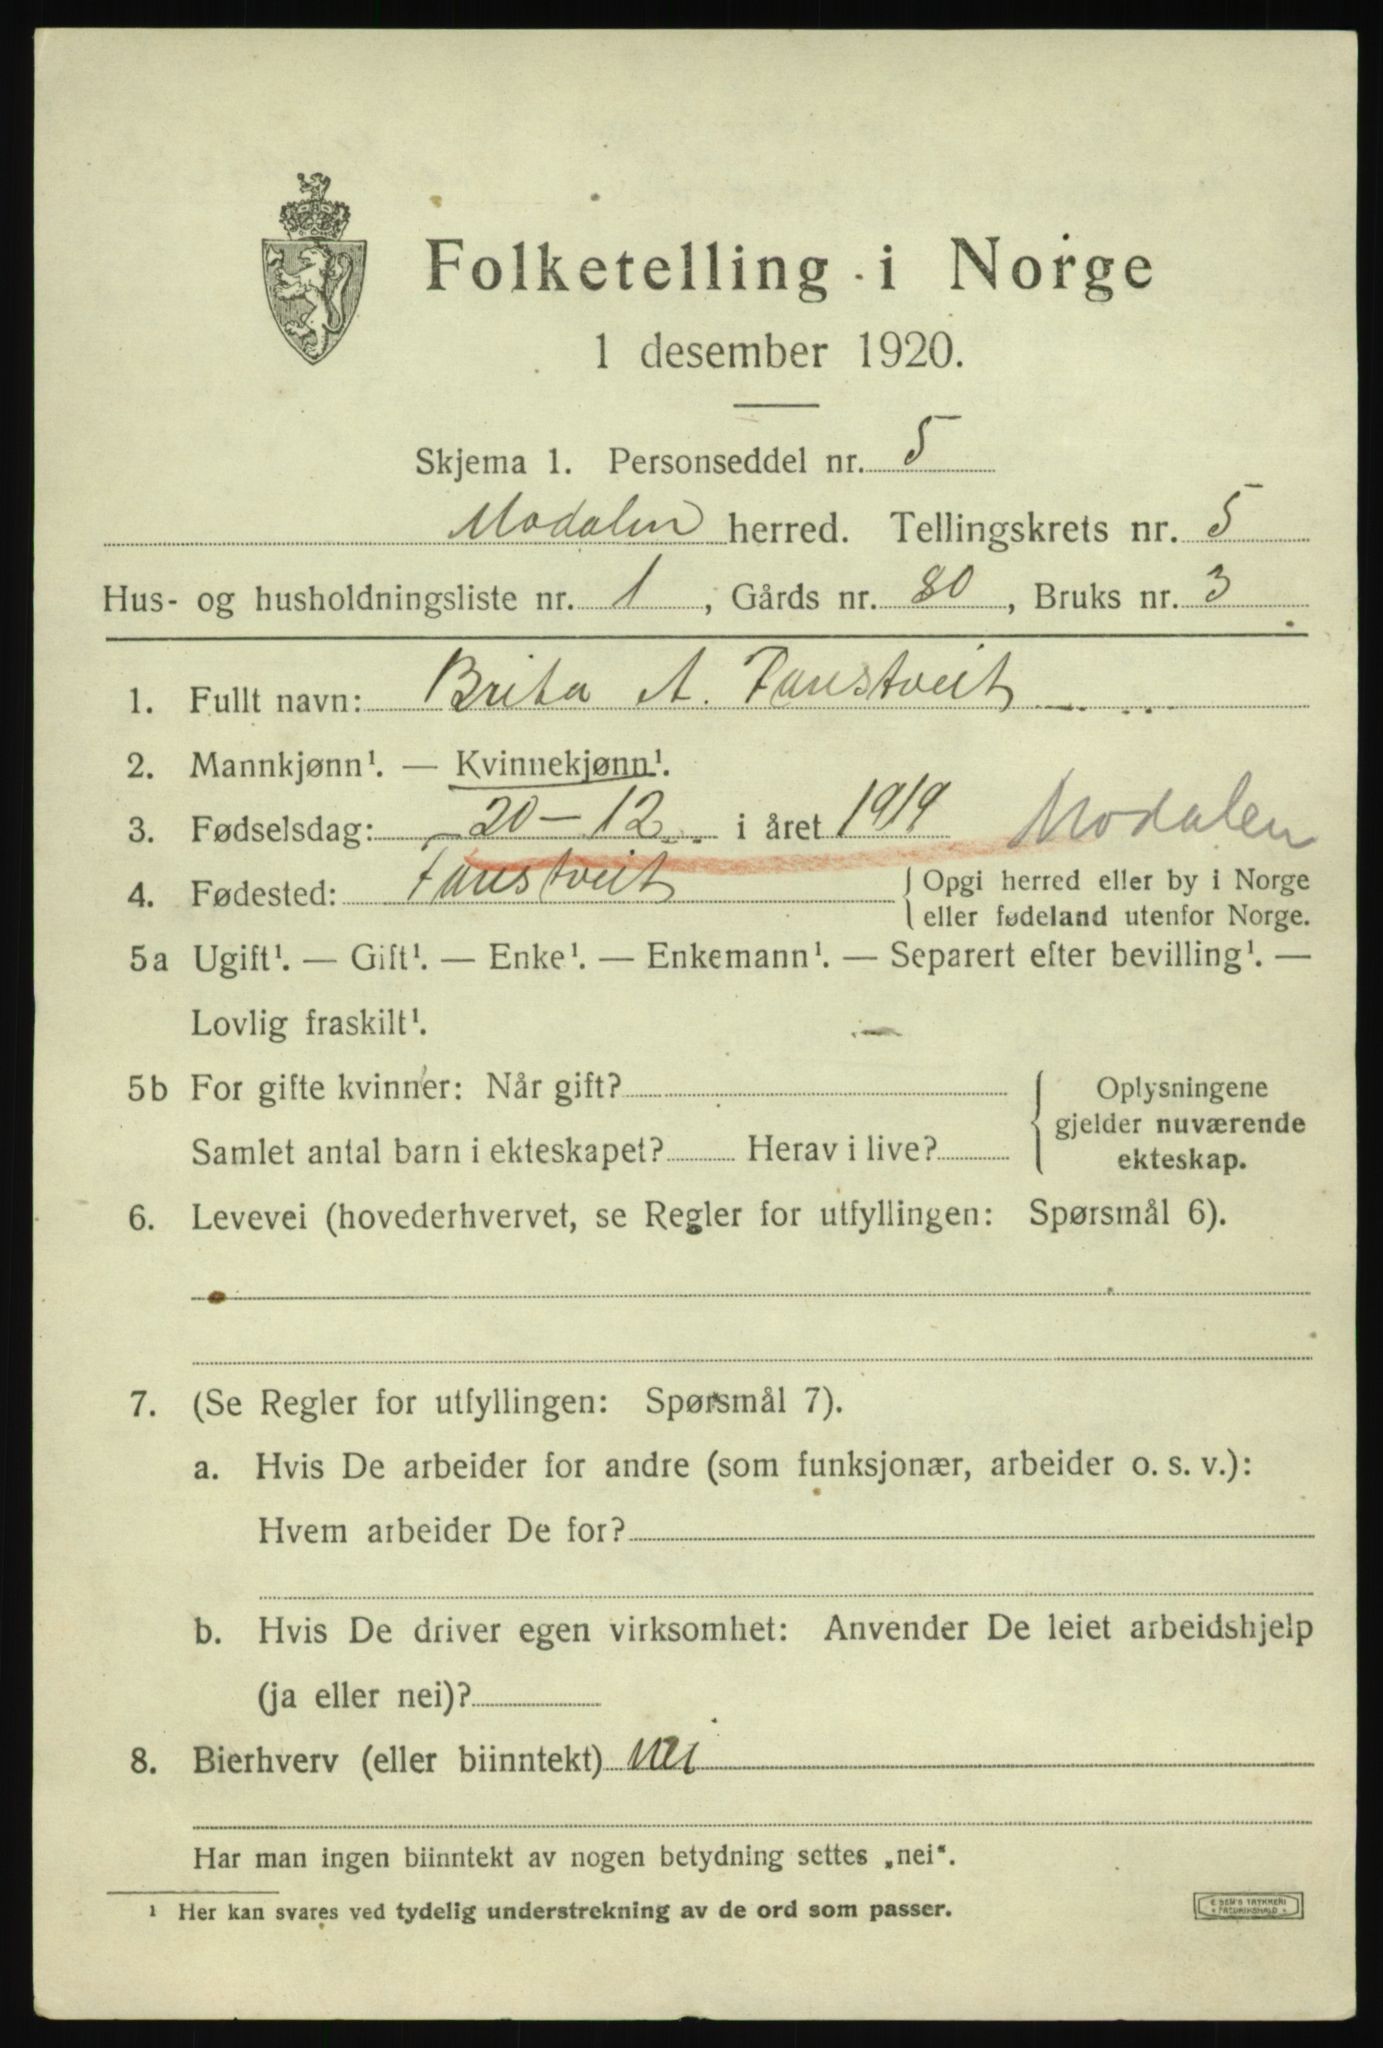 Folketelling i Norge
1 desember 1920.
Skjema 1. Personseddel nr. 5
Modalen herred. Tellingskrets nr. 5
Hus- og husholdningsliste nr. 1, Gårds nr. 80, Bruks nr. 3
1. Fullt navn: Brita A. Farestveit
2. Mannkjønn¹. — Kvinnekjønn¹.
3. Fødselsdag: 20 – 12 i året 1919 Modalen
4. Fødested: Farestveit { Opgi herred eller by i Norge
eller fødeland utenfor Norge.
5a Ugift¹. — Gift¹. — Enke¹. — Enkemann¹. — Separert efter bevilling¹. —
Lovlig fraskilt¹.
5b For gifte kvinner: Når gift? { Oplysningene
gjelder nuværende
Samlet antal barn i ekteskapet? Herav i live? ekteskap.
6. Levevei (hovederhvervet, se Regler for utfyllingen: Spørsmål 6).
7. (Se Regler for utfyllingen: Spørsmål 7).
a. Hvis De arbeider for andre (som funksjonær, arbeider o. s. v.):
Hvem arbeider De for?
b. Hvis De driver egen virksomhet: Anvender De leiet arbeidshjelp
(ja eller nei)?
8. Bierhverv (eller biinntekt) nei
Har man ingen biinntekt av nogen betydning settes „nei“.
¹ Her kan svares ved tydelig understrekning av de ord som passer.
E SEM'S TRYKKERI
FREDRIKSHALD